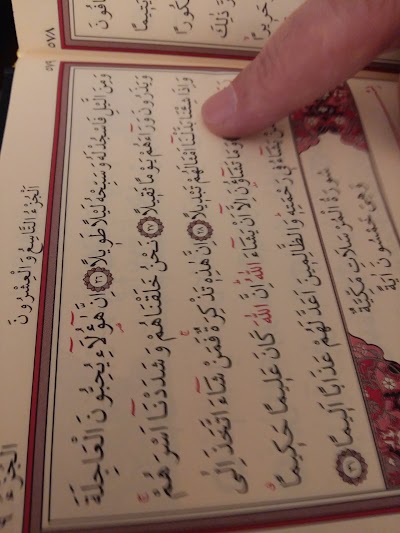 ٥٧٨
٥٧٩
اَلْجُزْءُ التَّاسِعُ وَالْعِشْرُونَ
وَمِنَ الَّيْلِ فَاسْجُدْ لَهُ وَسَبِّحْهُ لَيْلًا طَوِيلًا ﴿٢٦﴾ اِنَّ هٰٓؤُلَٓاءِ يُحِبُّونَ الْعَاجِلَةَ
وَيَذَرُونَ وَرَٓاءَهُمْ يَوْمًا ثَقِيلًا ﴿٢٧﴾ نَحْنُ خَلَقْنَاهُمْ وَشَدَدْنَٓا اَسْرَهُمْ
وَاِذَا شِئْنَا بَدَّلْنَٓا اَمْثَالَهُمْ تَبْدِيلًا ﴿٢٨﴾ اِنَّ هٰذِهِ تَذْكِرَةٌ فَمَنْ شَٓاءَ اتَّخَذَ اِلٰى
وَمَا تَشَٓاؤُنَ اِلَّٓا اَنْ يَشَٓاءَ اللّٰهُ اِنَّ اللّٰهَ كَانَ عَلِيمًا حَكِيمًا
يَشَٓاءُ فِي رَحْمَتِهِ وَالظَّالِمِينَ اَعَدَّ لَهُمْ عَذَابًا اَلِيمًا ﴿٣١﴾
سُورَةُ الْمُرْسَلَاتِ مَكِّيَّةٌ
وَهِيَ خَمْسُونَ اٰيَةً